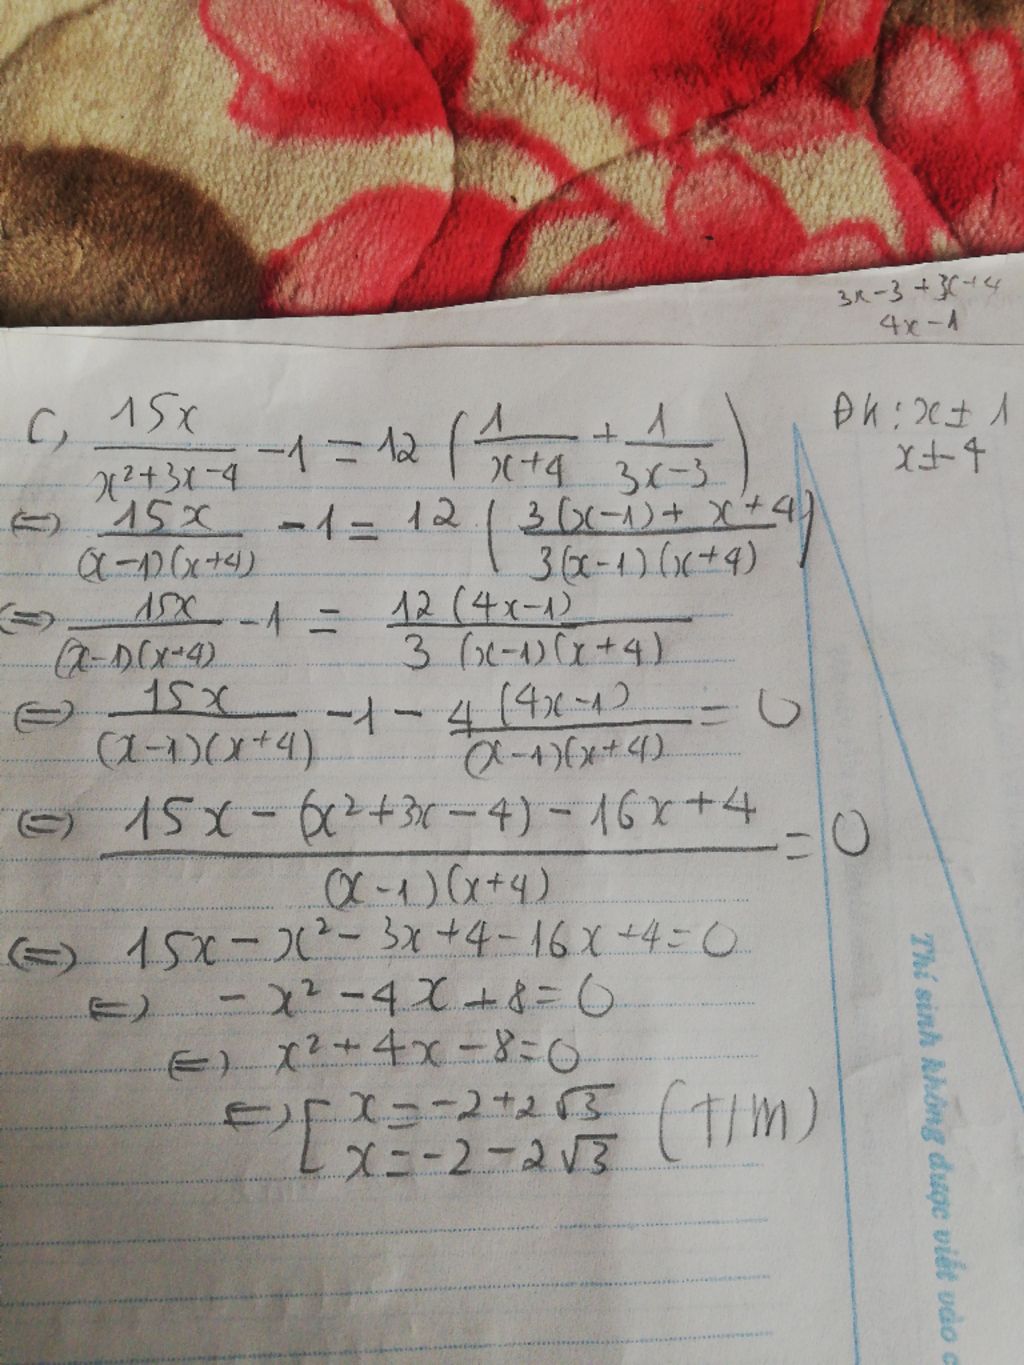 3x-3+3x+4
4x-1
C, 15x/(x²+3x-4) -1 = 12 (1/(x+4) + 1/(3x-3))
ĐK: x ± 1
x ± -4
(=) 15x/((x-1)(x+4)) -1 = 12 ((3(x-1)+x+4)/(3(x-1)(x+4)))
(=) 15x/((x-1)(x+4)) -1 = 12(4x-1)/(3(x-1)(x+4))
(=) 15x/((x-1)(x+4)) -1 - 4(4x-1)/((x-1)(x+4)) = 0
(=) (15x-(x²+3x-4)-16x+4)/((x-1)(x+4)) = 0
(=) 15x-x²-3x+4-16x+4=0
(=) -x²-4x+8=0
(=) x²+4x-8=0
(=) [ x=-2+2√3
x=-2-2√3 (T/M)
Thí sinh không được viết vào